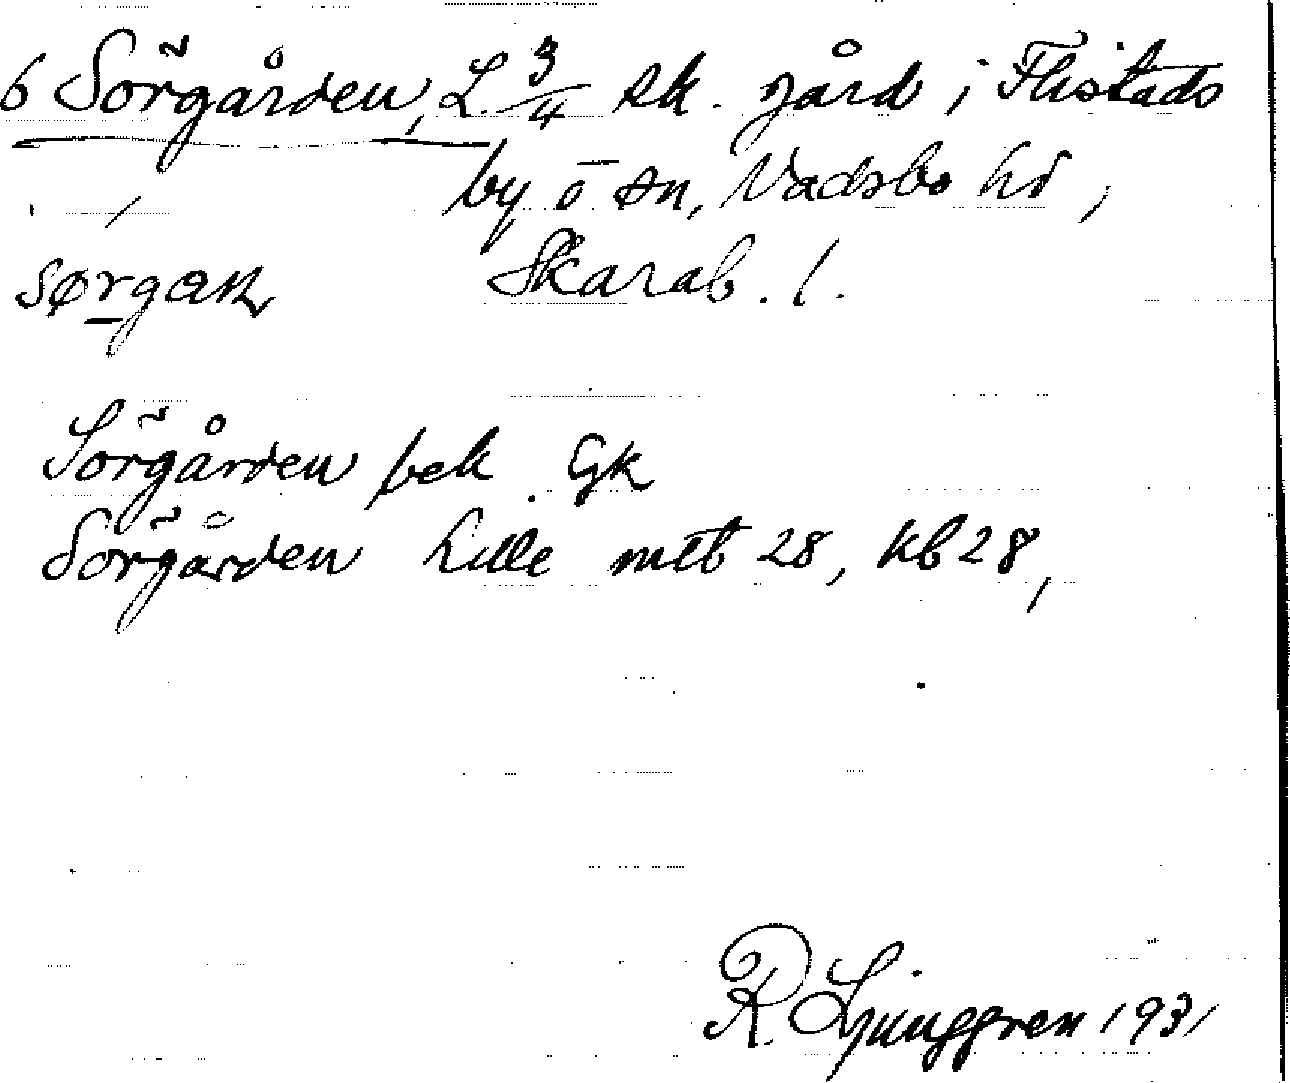 6 Sörgården, L. 3/4 sk. gård i Flistads
by o sn, Vadsbo hd,
Skarab. l.
sørgaɳ
Sörgården bek. Gk
Sörgården Lille mtb 28, kb 28,
R Ljunggren 1931